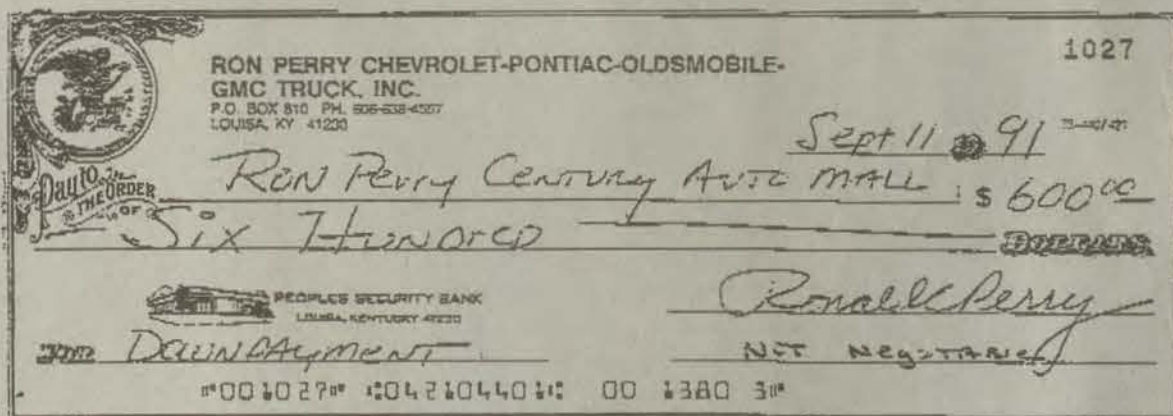 1027
RON PERRY CHEVROLET-PONTIAC-OLDSMOBILE-
GMC TRUCK, INC.
P.O. BOX 810 PH. 606-638-4567
LOUISA, KY 41230
Sept 11 91
Pay to THE ORDER OF Ron Perry Century Auto Mall $ 600 00
Six Hundred DOLLARS
PEOPLES SECURITY BANK
LOUISA, KENTUCKY 41230
Ronald C Perry
FOR DownPayment
Not Negotiable
⑈001027⑈ ⑆042104401⑆ 00 1380 3⑈